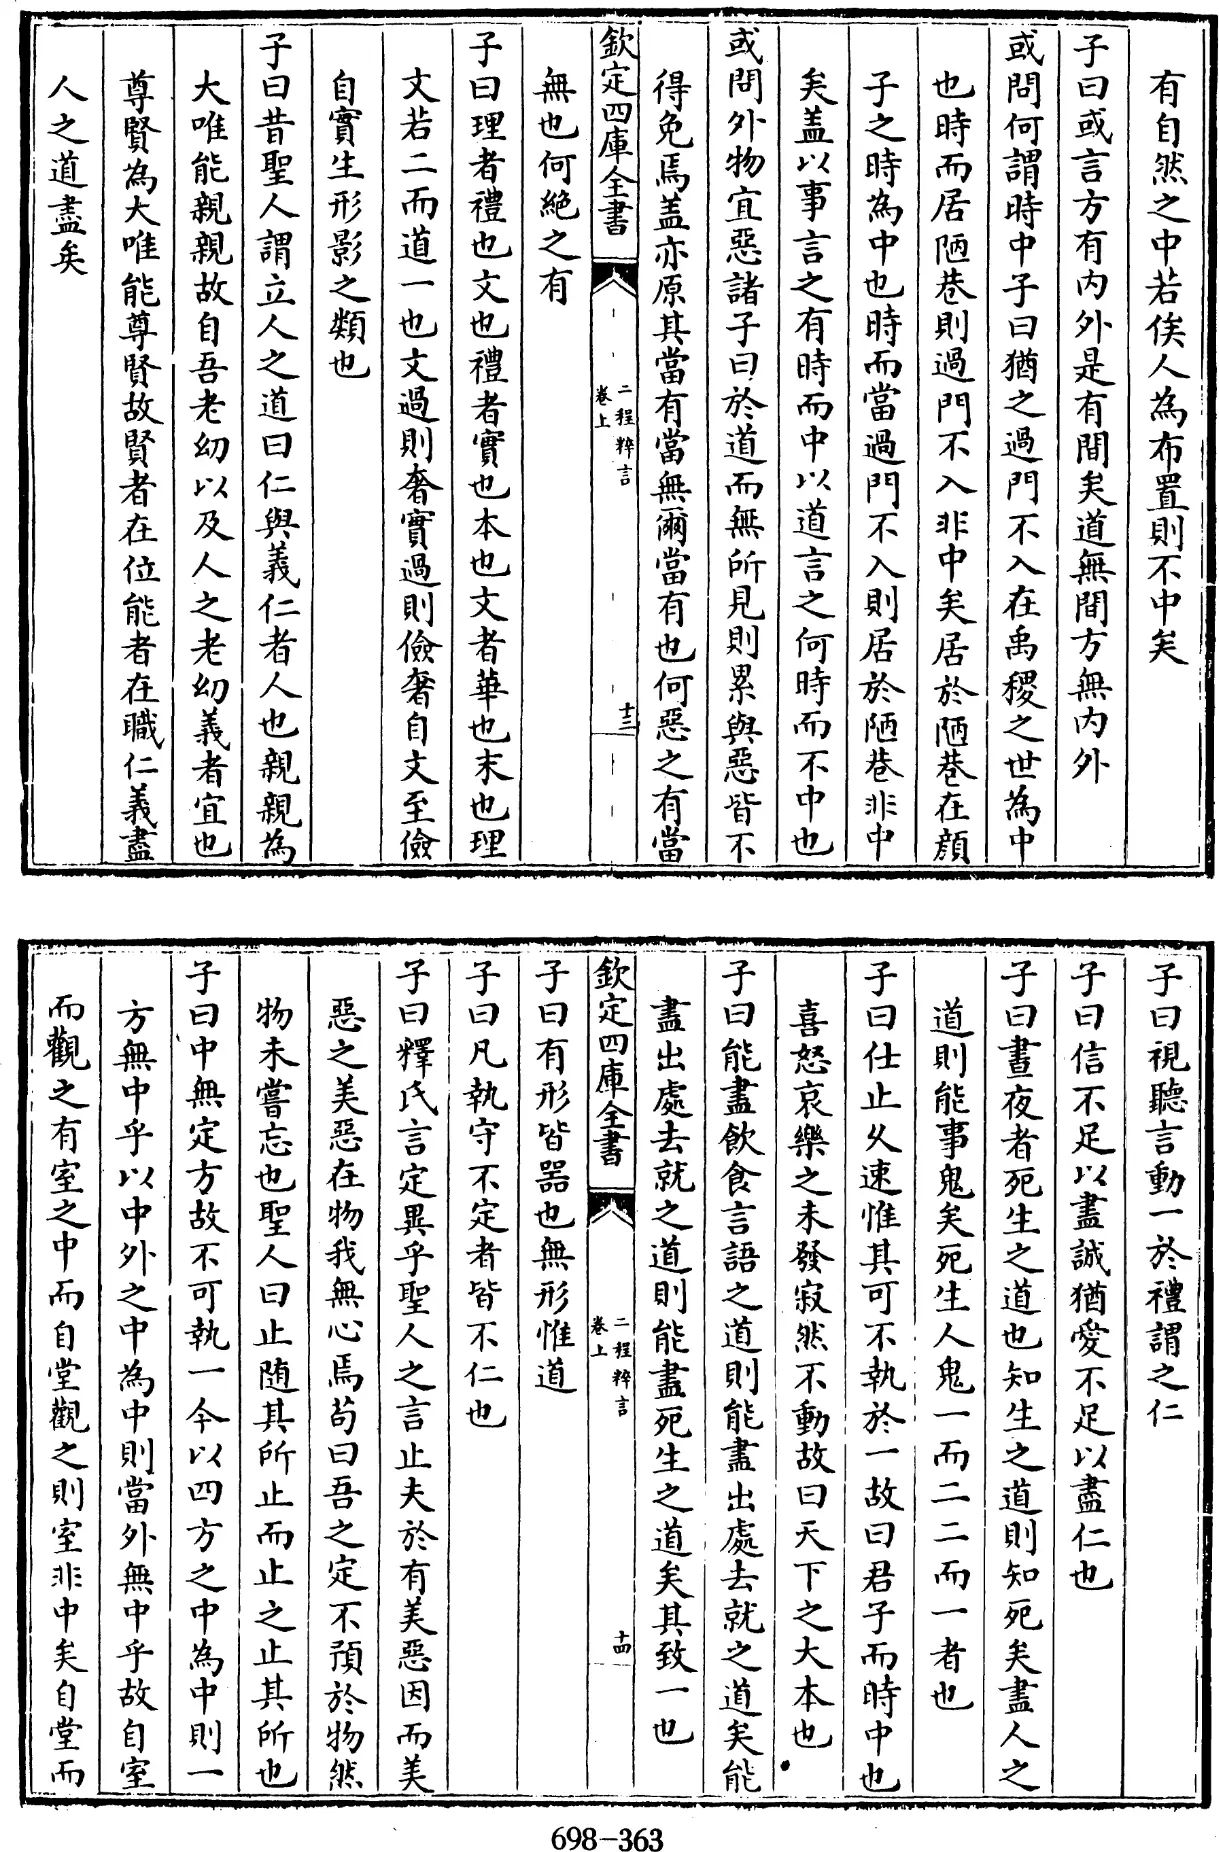 有自然之中若俟人為布置則不中矣
子曰或言方有内外是有間矣道無間方無内外
或問何謂時中子曰猶之過門不入在禹稷之世為中
也時而居陋巷則過門不入非中矣居於陋巷在顔
子之時為中也時而當過門不入則居於陋巷非中
矣盖以事言之有時而中以道言之何時而不中也
或問外物宜惡諸子曰於道而無所見則累與惡皆不
得免焉盖亦原其當有當無爾當有也何惡之有當
欽定四庫全書
二程粹言
卷上
十三
無也何絶之有
子曰理者禮也文也禮者實也本也文者華也末也理
文若二而道一也文過則奢實過則儉奢自文至儉
自實生形影之類也
子曰昔聖人謂立人之道曰仁與義仁者人也親親為
大唯能親親故自吾老幼以及人之老幼義者宜也
尊賢為大唯能尊賢故賢者在位能者在職仁義盡
人之道盡矣
子曰視聽言動一於禮謂之仁
子曰信不足以盡誠猶愛不足以盡仁也
子曰晝夜者死生之道也知生之道則知死矣盡人之
道則能事鬼矣死生人鬼一而二二而一者也
子曰仕止久速惟其可不執於一故曰君子而時中也
喜怒哀樂之未發寂然不動故曰天下之大本也
子曰能盡飲食言語之道則能盡出處去就之道矣能
盡出處去就之道則能盡死生之道矣其致一也
欽定四庫全書
二程粹言
卷上
十四
子曰有形皆器也無形惟道
子曰凡執守不定者皆不仁也
子曰釋氏言定異乎聖人之言止夫於有美惡因而美
惡之美惡在物我無心焉苟曰吾之定不預於物然
物未嘗忘也聖人曰止随其所止而止之止其所也
子曰中無定方故不可執一今以四方之中為中則一
方無中乎以中外之中為中則當外無中乎故自室
而觀之有室之中而自堂觀之則室非中矣自堂而
698-363